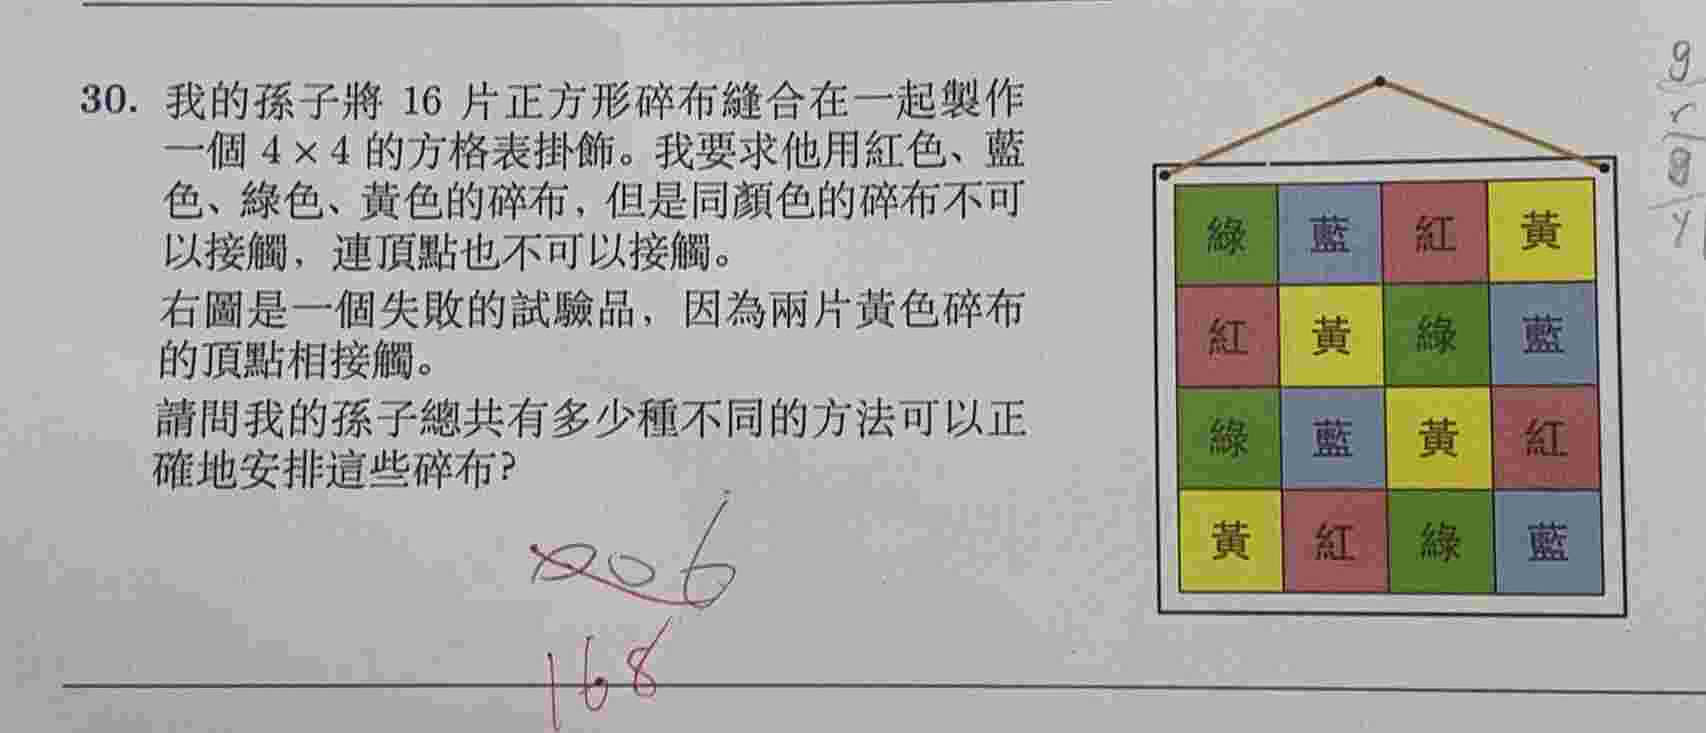 30. 我的孫子將 16 片正方形碎布縫合在一起製作
一個 4 × 4 的方格表掛飾。我要求他用紅色、藍
色、綠色、黃色的碎布，但是同顏色的碎布不可
以接觸，連頂點也不可以接觸。
右圖是一個失敗的試驗品，因為兩片黃色碎布
的頂點相接觸。
請問我的孫子總共有多少種不同的方法可以正
確地安排這些碎布?
168
綠 藍 紅 黃
紅 黃 綠 藍
綠 藍 黃 紅
黃 紅 綠 藍
g
r
y